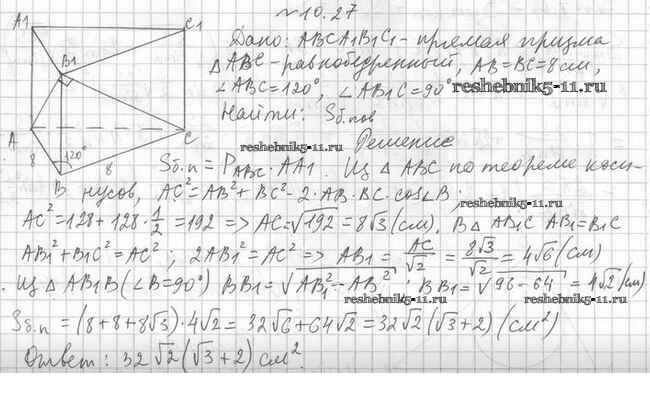 №10.27
A1 C1
Дано: ABCA1B1C1 - прямая призма
B1
△ABC - равнобедренный, AB=BC=8см,
∠ABC=120°, ∠AB1C=90°
reshebnik5-11.ru
Найти: Sб.пов
A C
reshebnik5-11.ru
Решение
8 120° 8
Sб.п = PABC · AA1. Из △ABC по теореме коси-
B
нусов, AC²=AB²+BC²-2·AB·BC·cos∠B.
AC²=128+128·1/2=192 => AC=√192=8√3(см). В △ AB1C AB1=B1C
AB1²+B1C²=AC²; 2AB1²=AC² => AB1=AC/√2=8√3/√2=4√6(см)
reshebnik5-11.ru
Из △ AB1B(∠B=90°) BB1=√AB1²-AB²; BB1=√96-64=4√2(см)
reshebnik5-11.ru
reshebnik5-11.ru
Sб.п=(8+8+8√3)·4√2=32√6+64√2=32√2(√3+2)(см²)
Ответ: 32√2(√3+2)см².